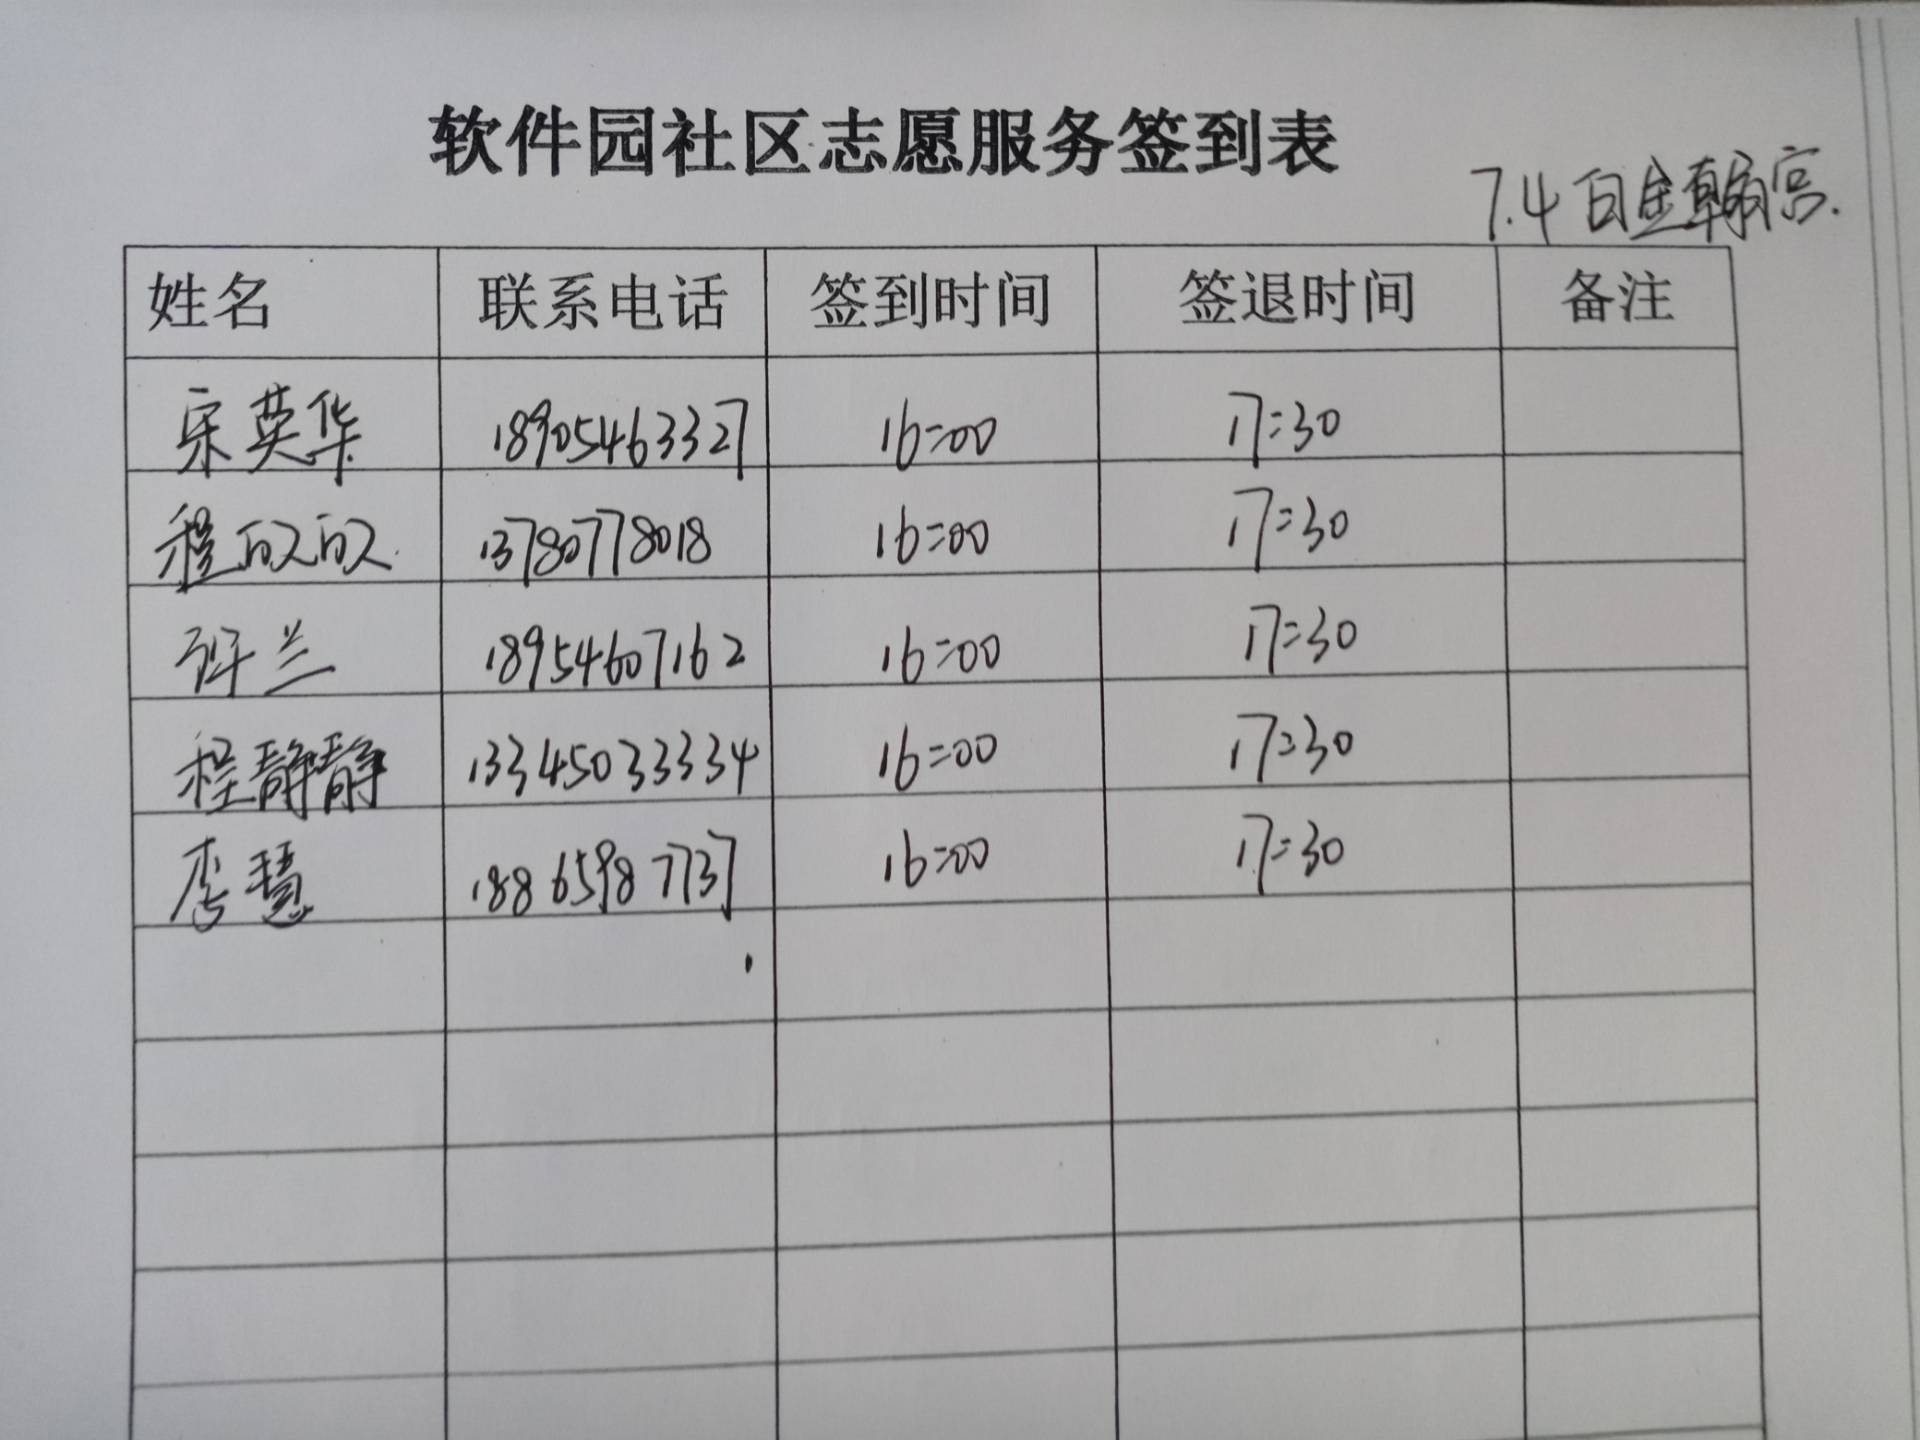 软件园社区志愿服务签到表
7.4日金翰宫.
姓名 联系电话 签到时间 签退时间 备注
宋英华 18905463327 16:00 17:30
程 13780778018 16:00 17:30
许兰 18954607162 16:00 17:30
程静静 13345033334 16:00 17:30
李慧 18865987737 16:00 17:30